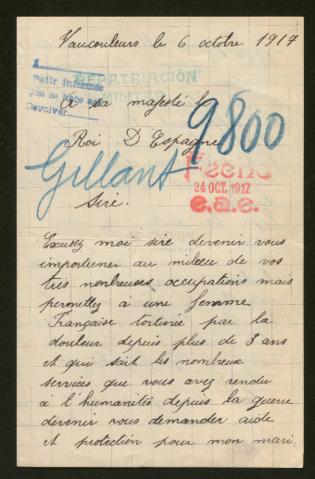 Vaucouleurs le 6 octobre 1917
A
Petir informes
que se hace en
Devolver
REPATRIACIÓN
MILITAR
A sa majesté le
9800
Roi D'Espagne
Gillant
24 OCT. 1917
e.a.e.
Siré.
Excusez moi siré devenir vous
importuner au milieu de vos
très nonbreuses occupations mais
permettez à une femme
Française torturée par la
douleur depuis plus de 3 ans
et qui sait les nombreux
services que vous avez rendu
à l'humanités depuis la guerre
devenir vous demander aide
et protection pour mon mari.